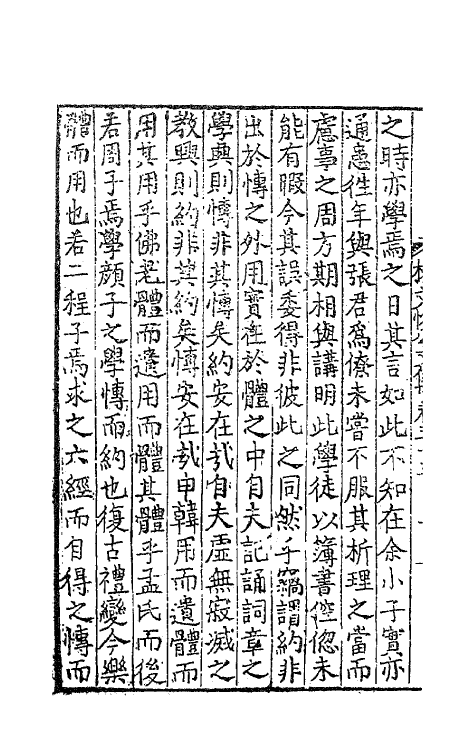 之時亦學焉之日其言如此不知在余小子實亦
通患徃年與張君爲僚未嘗不服其析理之當而
慮事之周方期相與講明此學徒以簿書倥偬未
能有暇今其誤委得非彼此之同然乎竊謂約非
出於愽之外用實在於體之中自夫記誦詞章之
學興則愽非其愽矣約安在㢤自夫虛無寂滅之
教興則約非其約矣愽安在㢤申韓用而遺體而
用其用乎佛老體而遺用而體其體乎孟氏而後
若周子焉學顏子之學愽而約也復古禮變今樂
體而用也若二程子焉求之六經而自得之愽而